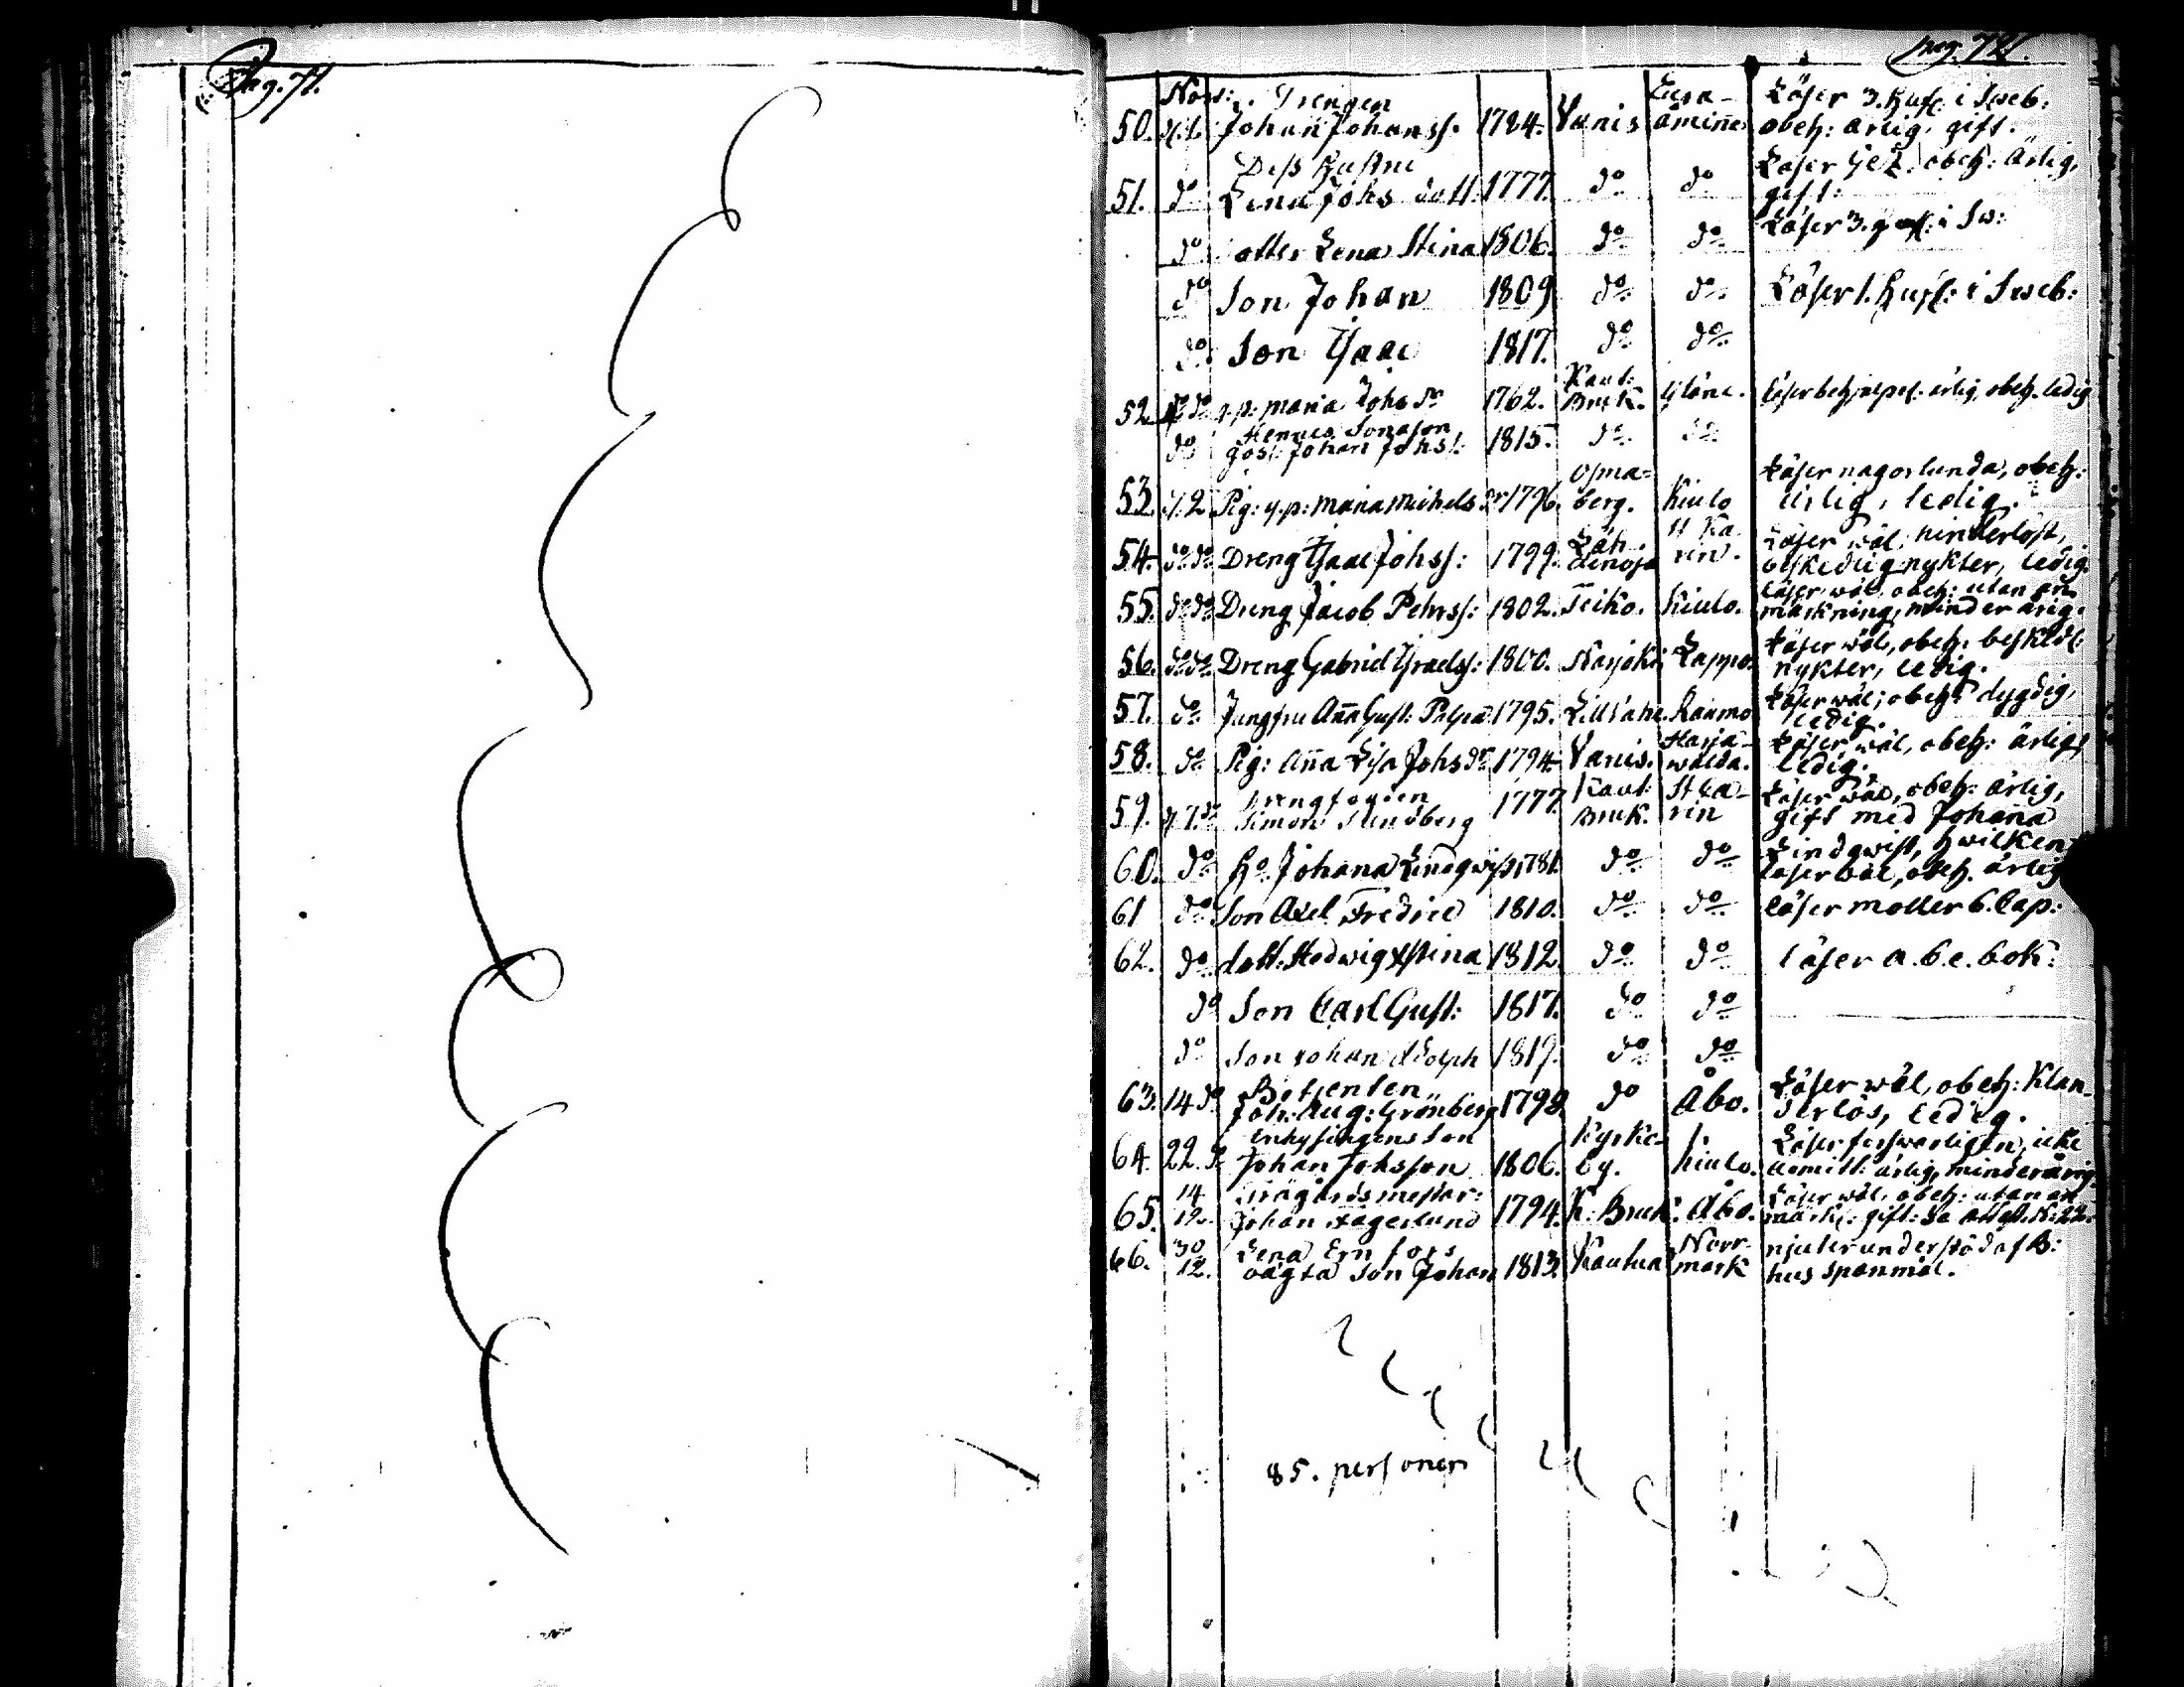 Pag. 71.
pag. 72.
Nov: Drengen Eura-
50. Johan Johanss. 1784. Vanis åminne Läser 3. Huf: i Sweb: obeh: ärlig, gift.
Dess Hustru
51. do Lena Johs dott: 1777. do do Läser obeh: ärlig, gift:
do otter Lena Stina 1806. do do Läser 3. i Sw:
do Son Johan 1809 do do Läser 1. Huf: i Sweb:
do Son Isaac 1817. do do
52. do q.p: Maria Johs dr 1762. Kaut: Bruk. läser behjelpel: ärlig, obeh. ledig
do Hennes Sonason Johan Johss: 1815. do do
53. Pig: q.p: Maria Michels dr 1796. berg. Kiulo läser någorlunda, obeh: ärlig, ledig.
54. do do Dreng Isaac Johss: 1799. St Ka rin. Läser wäl, hinderlöst, beskedlig nykter, ledig.
55. do do Dreng Jacob Pehrss: 1802. Teiko. Kiulo. läser wäl, obeh: utan an märkning, minderårig.
56. do do Dreng Gabriel Israelss: 1800. Karjoki Lappo. Läser wäl, obeh: beskedl: nykter, ledig.
57. do Jungfru Anna Gust: 1795. Raumo Läser wäl, obeh: dygdig, ledig.
58. do Pig: Anna Lisa Johs dr 1794. Vanis. Harja- walda. Läser wäl, obeh: ärlig, ledig.
59. Drengfogden Simon 1777. Kaut: Bruk. St Ca- rin Läser wäl, obeh: ärlig, gift med Johanna
60. do Ho Johana Lindqwist, 1781. do do Lindqwist, hwilken läser wäl, obeh. ärlig
61 do Son Axel Fredric 1810. do do läser moller 6. Cap:
62. do dott: Hedwig Xstina 1812. do do läser a.b.c. bok:
do Son Carl Gust: 1817. do do
do Son Johan Adolph 1819. do do
63. 14 do Betjenten Joh: Aug: Grönberg 1798. do Åbo. Läser wäl, obeh: klan- derlös, ledig.
64. 22. do Inhysingens Son Johan Johsson 1806. Kyrko- by. Kiulo. Läser försvarligen, icke admitt: ärlig, minderårig.
65. 14 12. Trägårdsmestar: Johan Hägerlund 1794. K: Bruk. Åbo. Läser wäl, obeh: utan an märk: gift:
66. 30 12. Lena Ern fors oägta Son Johan 1813. Kautua Norr- mark njuter understöd af B: hus spanmål.
85. personer